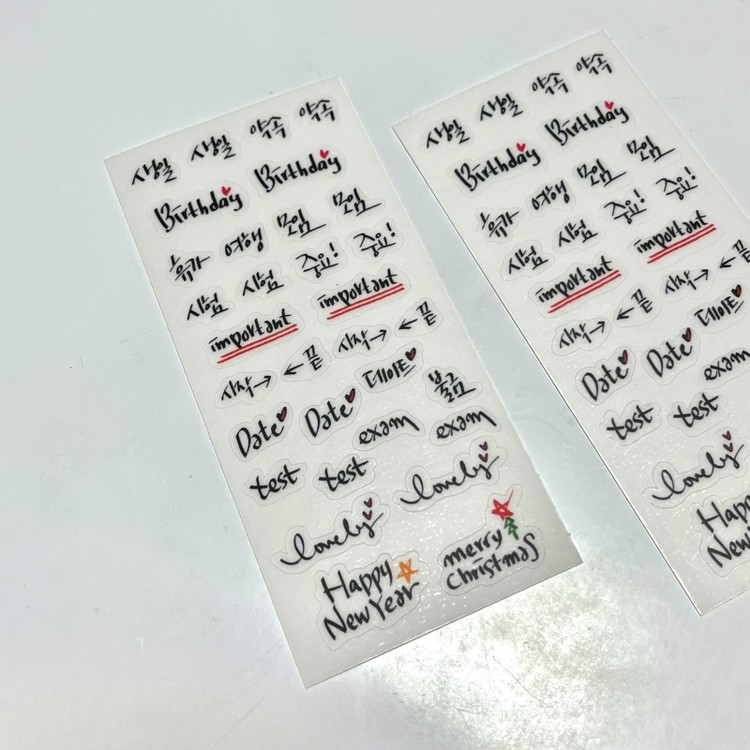 생일 생일 약속 약속
Birthday Birthday
휴가 여행 모임 모임
시험 시험 중요! 중요!
important important
시작→ ←끝 시작→ ←끝
Date Date 데이트 불금
exam exam
test test
lovely lovely
Happy New Year
merry christmas
생일 생일 약속 약속
Birthday Birthday
휴가 여행 모임 모임
시험 시험 중요! 중요!
important important
시작→ ←끝 시작→ ←끝
Date Date 데이트
exam
test test
lovely
Happ
New